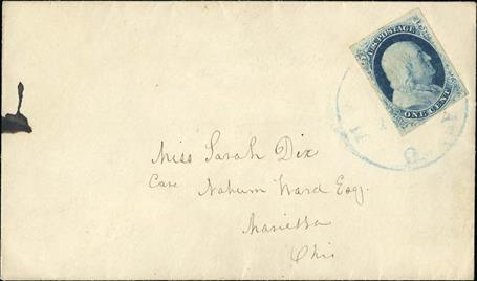 U.S. POSTAGE
ONE CENT
Miss Sarah Dix
Care Nahum Ward Esq.
Marietta
Ohio